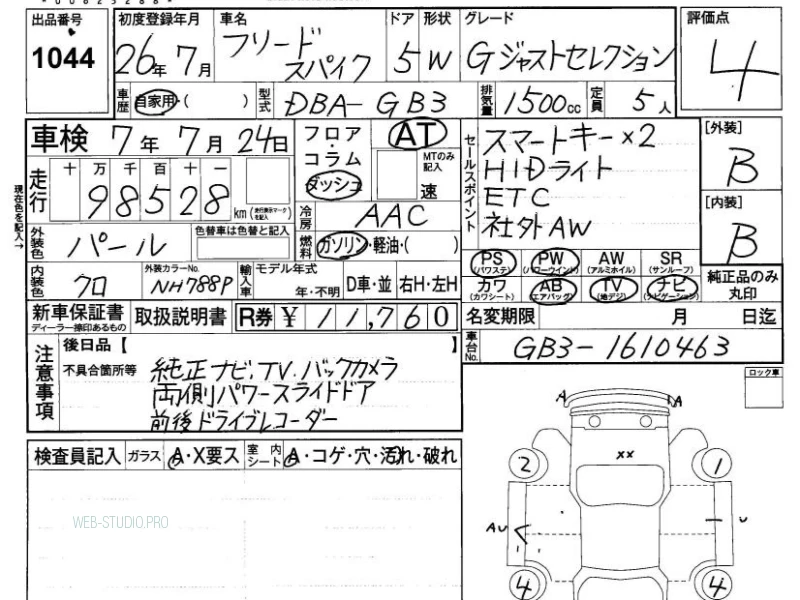 出品番号
1044
初度登録年月
26年7月
車名
フリード
スパイク
ドア
5
形状
W
グレード
Gジャストセレクション
評価点
4
車歴
自家用・( )
型式
DBA-GB3
排気量
1500cc
定員
5人
車検 7年7月24日
フロア・コラム
ダッシュ
AT
MTのみ記入
速
セールスポイント
スマートキー×2
HIDライト
ETC
社外AW
[外装]
B
[内装]
B
現在色を記入→
走行
十万千百十一
98528km
(走行表示マークを記入)
冷房
AAC
燃料
ガソリン・軽油・( )
外装色
パール
色替車は色替と記入
内装色
クロ
外装カラーNo.
NH788P
輸入車
モデル年式
年・不明
D車・並
右H・左H
PS
(パワステ)
PW
(パワーウインド)
AW
(アルミホイル)
SR
(サンルーフ)
カワ
(カワシート)
AB
(エアバッグ)
TV
(地デジ)
ナビ
(ナビゲーション)
純正品のみ
丸印
新車保証書
ディーラー捺印あるもの
取扱説明書
R券 ¥ 11,760
名変期限 月 日迄
車台No.
GB3-1610463
注意事項
後日品【 】
不具合箇所等
純正ナビ.TV.バックカメラ
両側パワースライドドア
前後ドライブレコーダー
ロック車
検査員記入
ガラス
A・X要ス
室内シート
A・コゲ・穴・汚れ・破れ
A A
xx
2 1
AU U
4 4
WEB-STUDIO.PRO